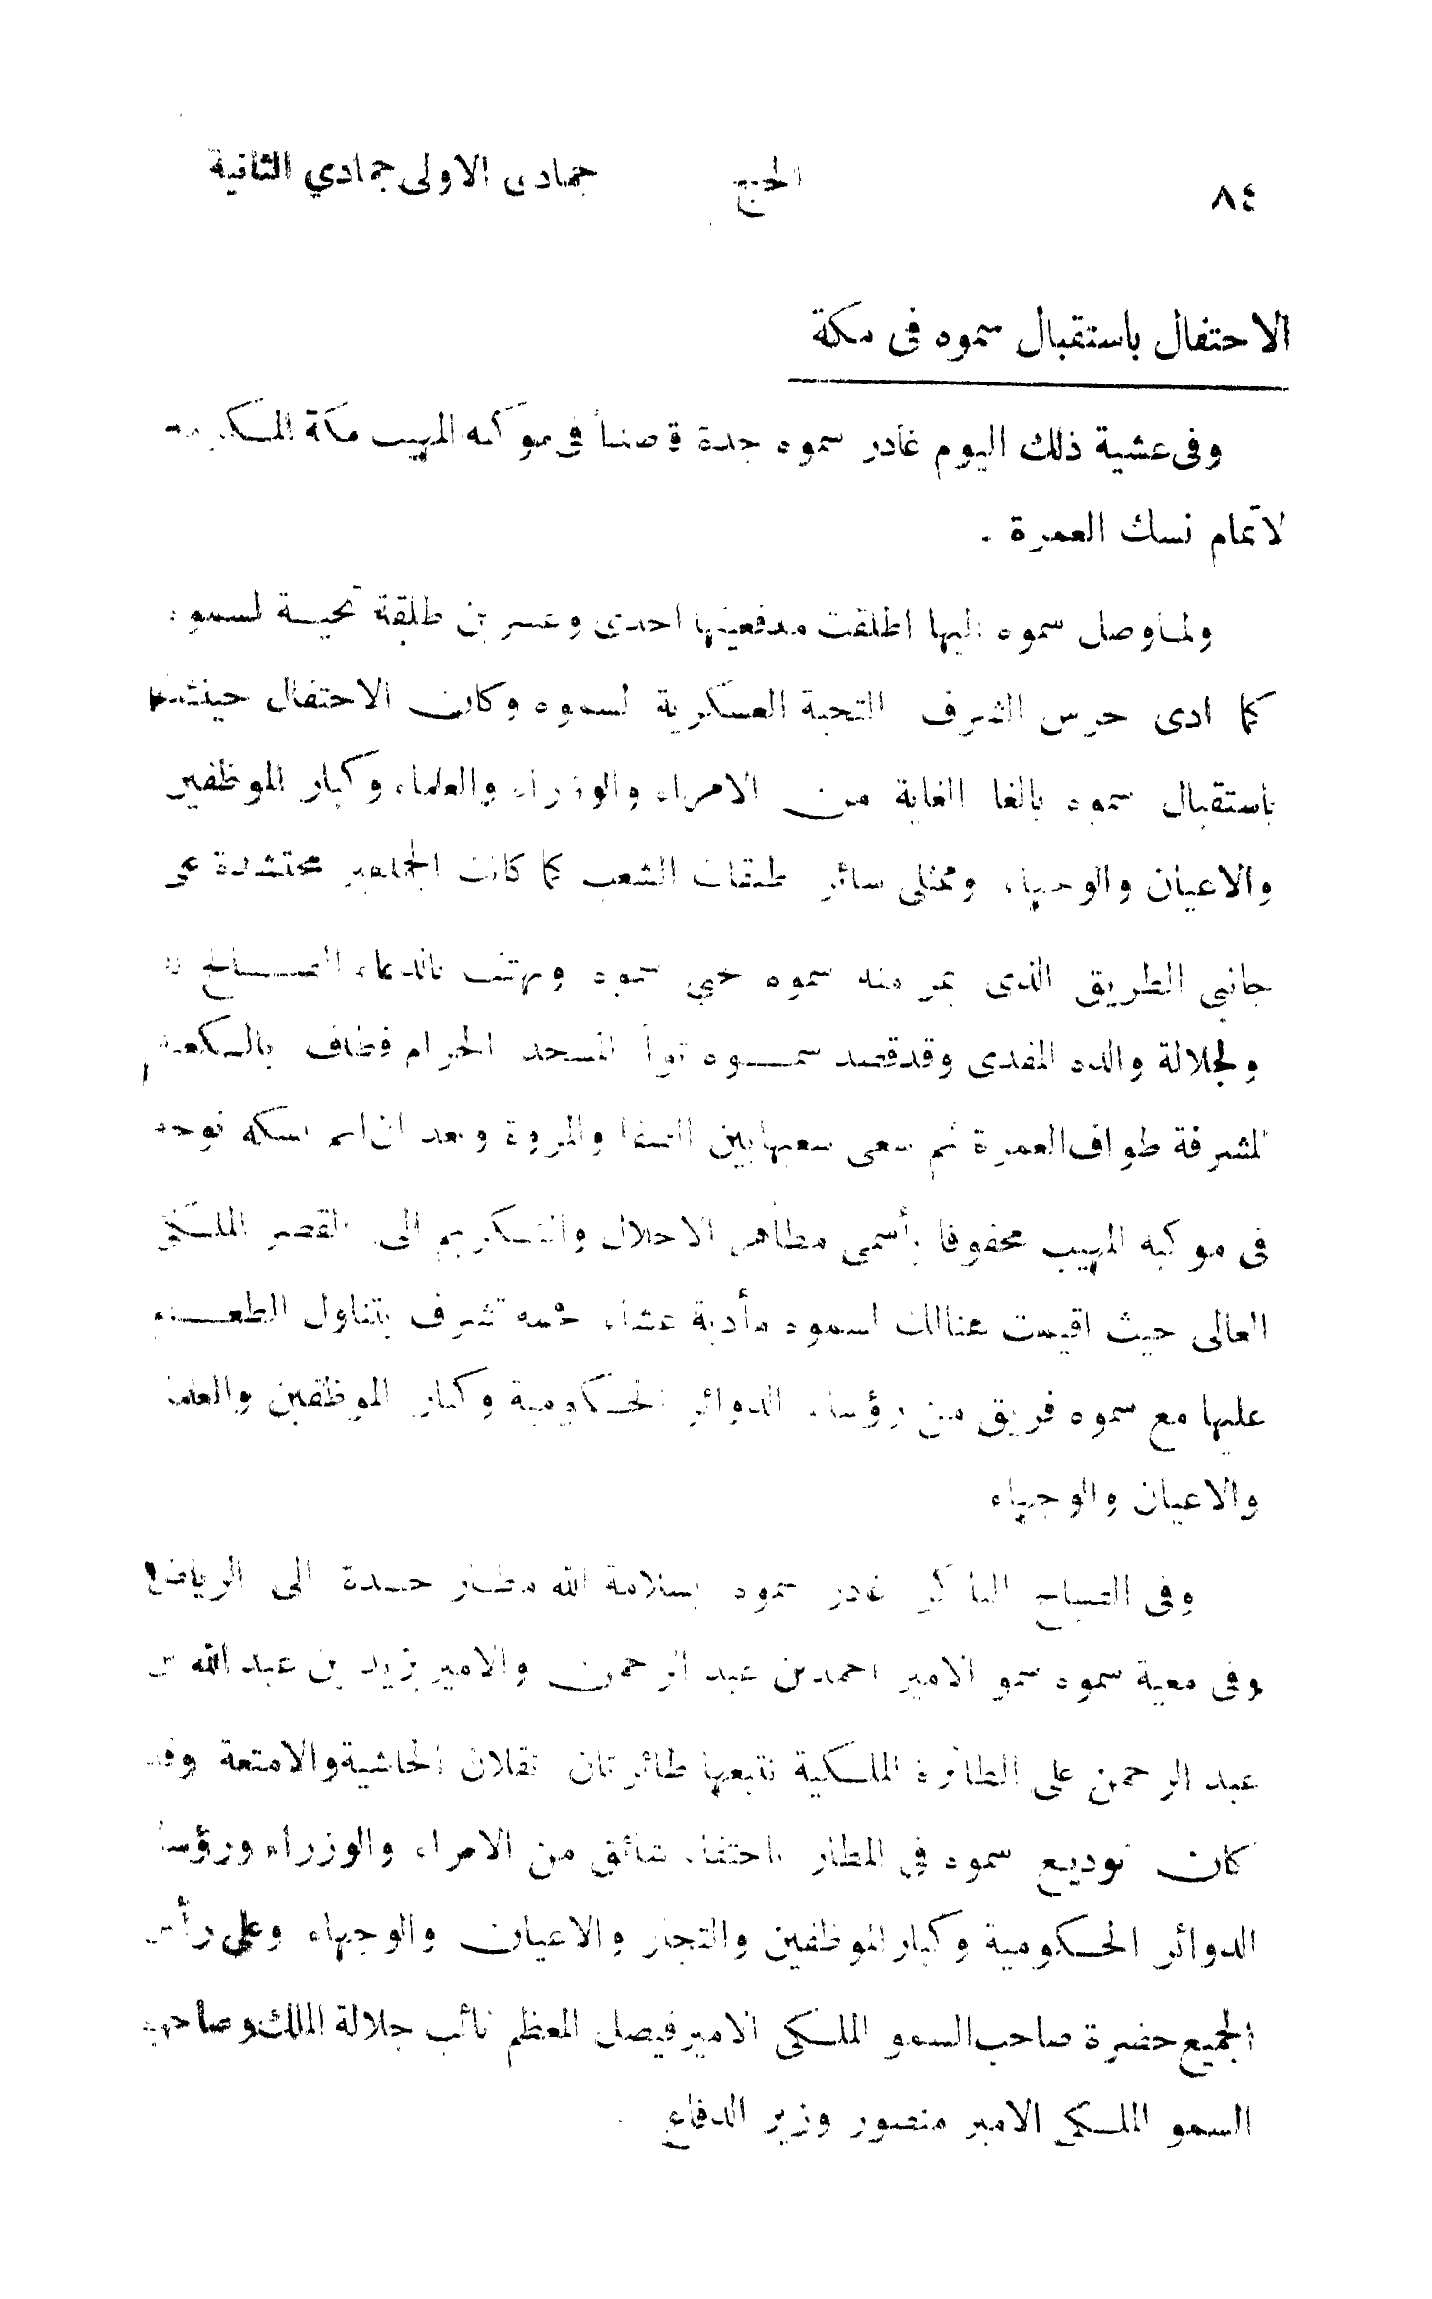 ٨٤ الحج جمادى الاولى جمادي الثانية
الاحتفال باستقبال سموه فى مكة
وفى عشية ذلك اليوم غادر سموه جدة قاصداً فى موكبه المهيب مكة المكرمة
لاتمام نسك العمرة .
ولما وصل سموه اليها اطلقت مدفعيتها احدى وعشرين طلقة تحية لسموه
كما ادى حرس الشرف التحية العسكرية لسموه وكان الاحتفال حينئذ
باستقبال سموه بالغا الغاية من الامراء والوزراء والعلماء وكبار الموظفين
والاعيان والوجهاء وممثلى سائر طبقات الشعب كما كانت الجماهير محتشدة على
جانبي الطريق الذى يمر منه سموه تحيي سموه وتهتف بالدعاء الصالح له
ولجلالة والده المفدى وقد قصد سموه تواً المسجد الحرام فطاف بالكعبة
المشرفة طواف العمرة ثم سعى سعيها بين الصفا والمروة وبعد ان اتم نسكه توجه
فى موكبه المهيب محفوفا بأسمى مظاهر الاجلال والتكريم الى القصر الملكي
العالى حيث اقيمت هنالك لسموه مأدبة عشاء فخمه تشرف بتناول الطعام
عليها مع سموه فريق من رؤساء الدوائر الحكومية وكبار الموظفين والعلماء
والاعيان والوجهاء
وفى الصباح الباكر غادر سموه بسلامة الله مطار جدة الى الرياض
وفى معية سموه سمو الامير احمد بن عبد الرحمن والامير يزيد بن عبد الله بن
عبد الرحمن على الطائرة الملكية تتبعها طائرتان تقلان الحاشية والامتعة وقد
كان توديع سموه فى المطار باحتفاء شائق من الامراء والوزراء ورؤساء
الدوائر الحكومية وكبار الموظفين والتجار والاعيان والوجهاء وعلى رأس
الجميع حضرة صاحب السمو الملكى الامير فيصل المعظم نائب جلالة الملك وصاحب
السمو الملكى الامير منصور وزير الدفاع .